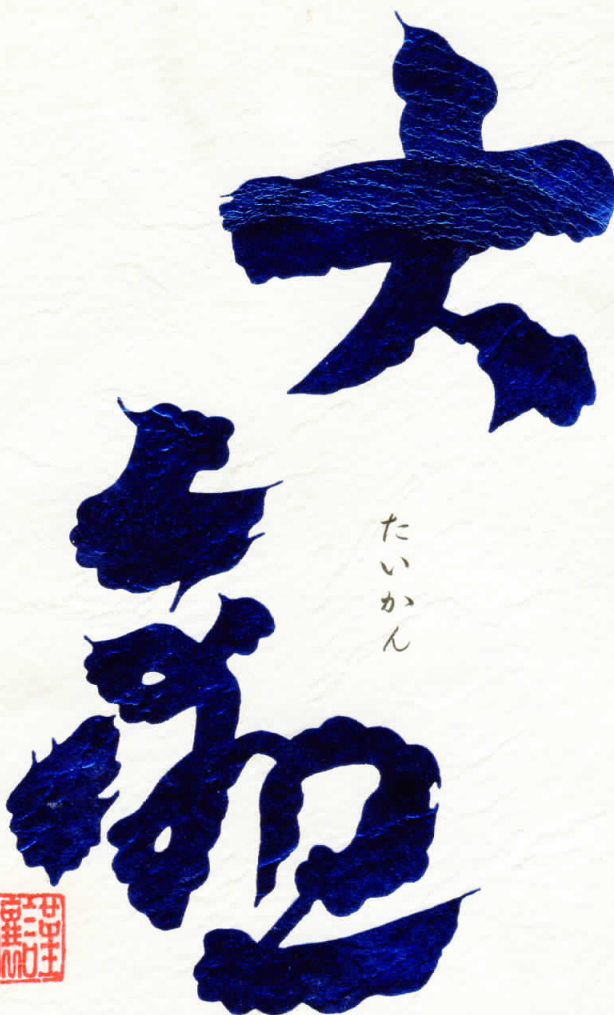 大観
たいかん